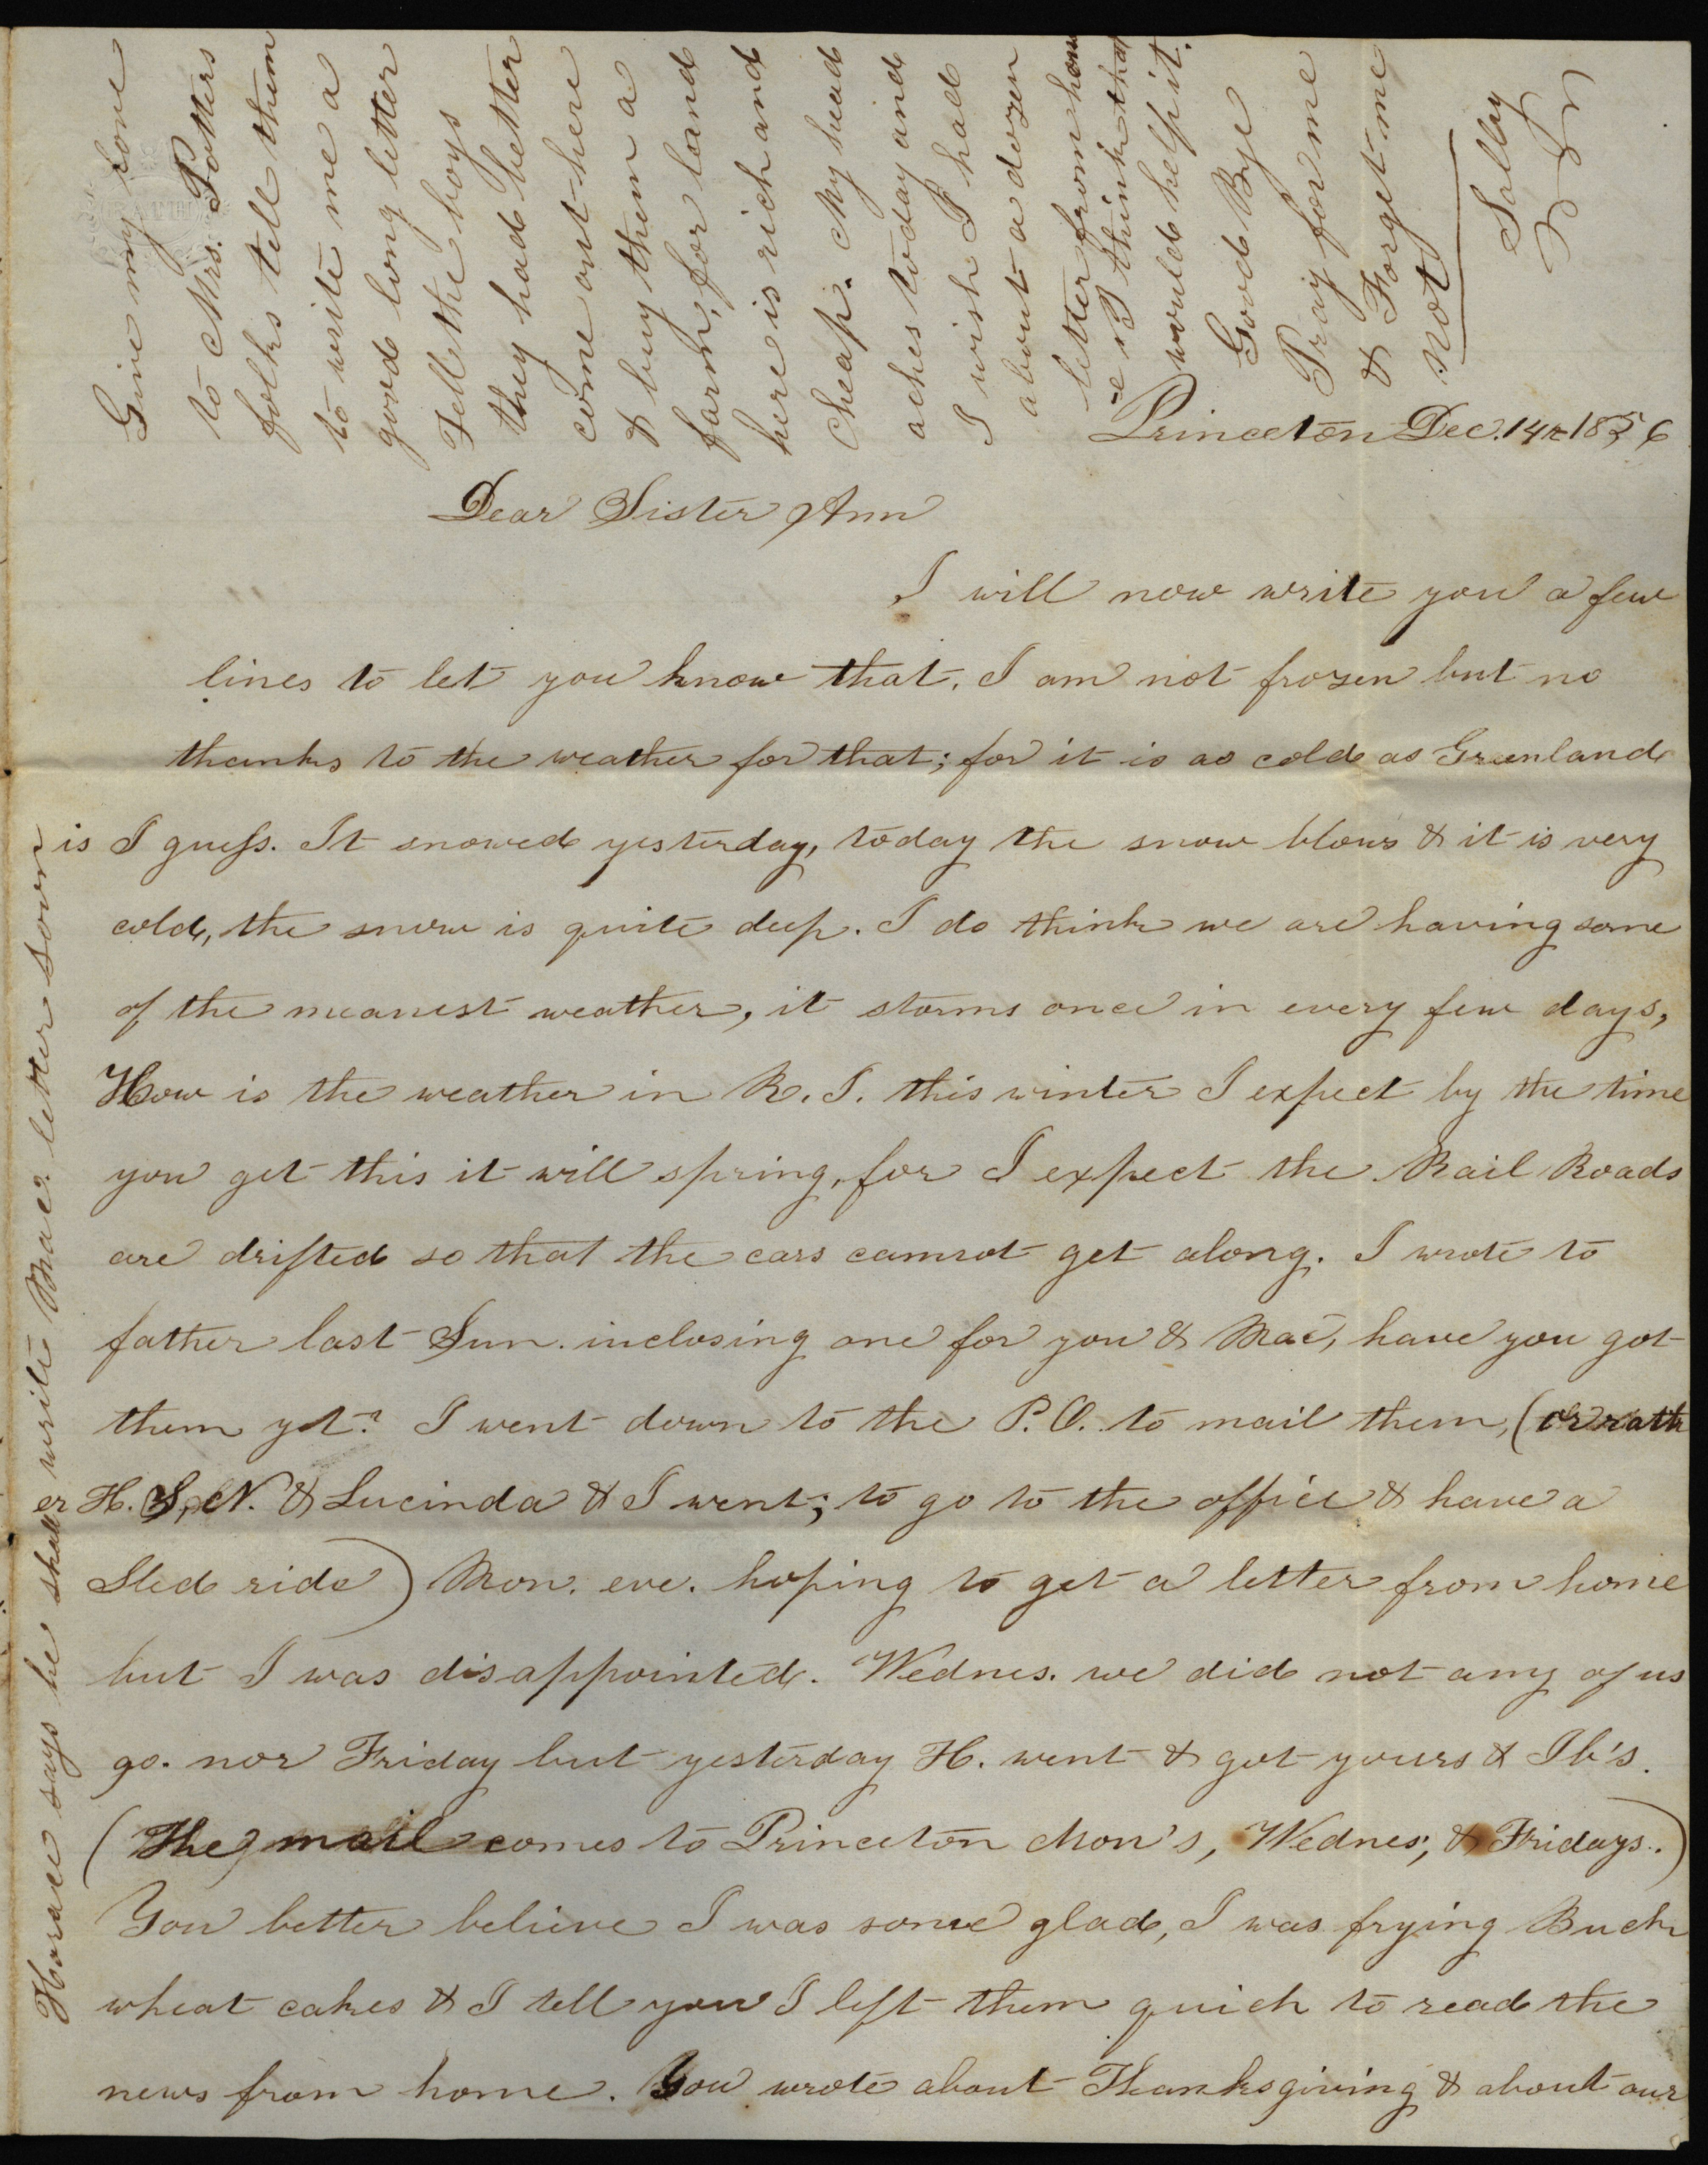 Princeton Dec. 14th 1856
Dear Sister Ann
I will now write you a few
lines to let you know that, I am not frozen but no
thanks to the weather for that; for it is as cold as Greenland
is I guess. It snowed yesterday, today the snow blows & it is very
cold, the snow is quite deep. I do think we are having some
of the meanest weather, it storms once in every few days,
How is the weather in R. I. this winter I expect by the time
you get this it will spring, for I expect the Rail Roads
are drifted so that the cars cannot get along. I wrote to
father last Sun. inclosing one for you & Mac, have you got
them yet? I went down to the P.O. to mail them, (or rath
er H. S, N. & Lucinda & I went; to go to the office & have a
Sled ride) Mon. eve. hoping to get a letter from home
but I was disappointed. Wednes. we did not any of us
go. nor Friday but yesterday H. went & got yours & Ib's.
(The mail comes to Princeton Mon's, Wednes, & Fridays.)
You better believe I was some glad, I was frying Buck
wheat cakes & I tell you I left them quick to read the
news from home. You wrote about Thanksgiving & about our
Give my love
to Mrs. Potters
folks tell them
to write me a
good long letter
Tell the boys
they had better
come out here
& buy them a
farm, for land
here is rich and
cheap. My head
aches today and
I wish I had
about a dozen
letter from hom
e I think that
would help it.
Good Bye
Pray for me
& Forget me
not
Sally
Horace says he shall write Mac. letter soon